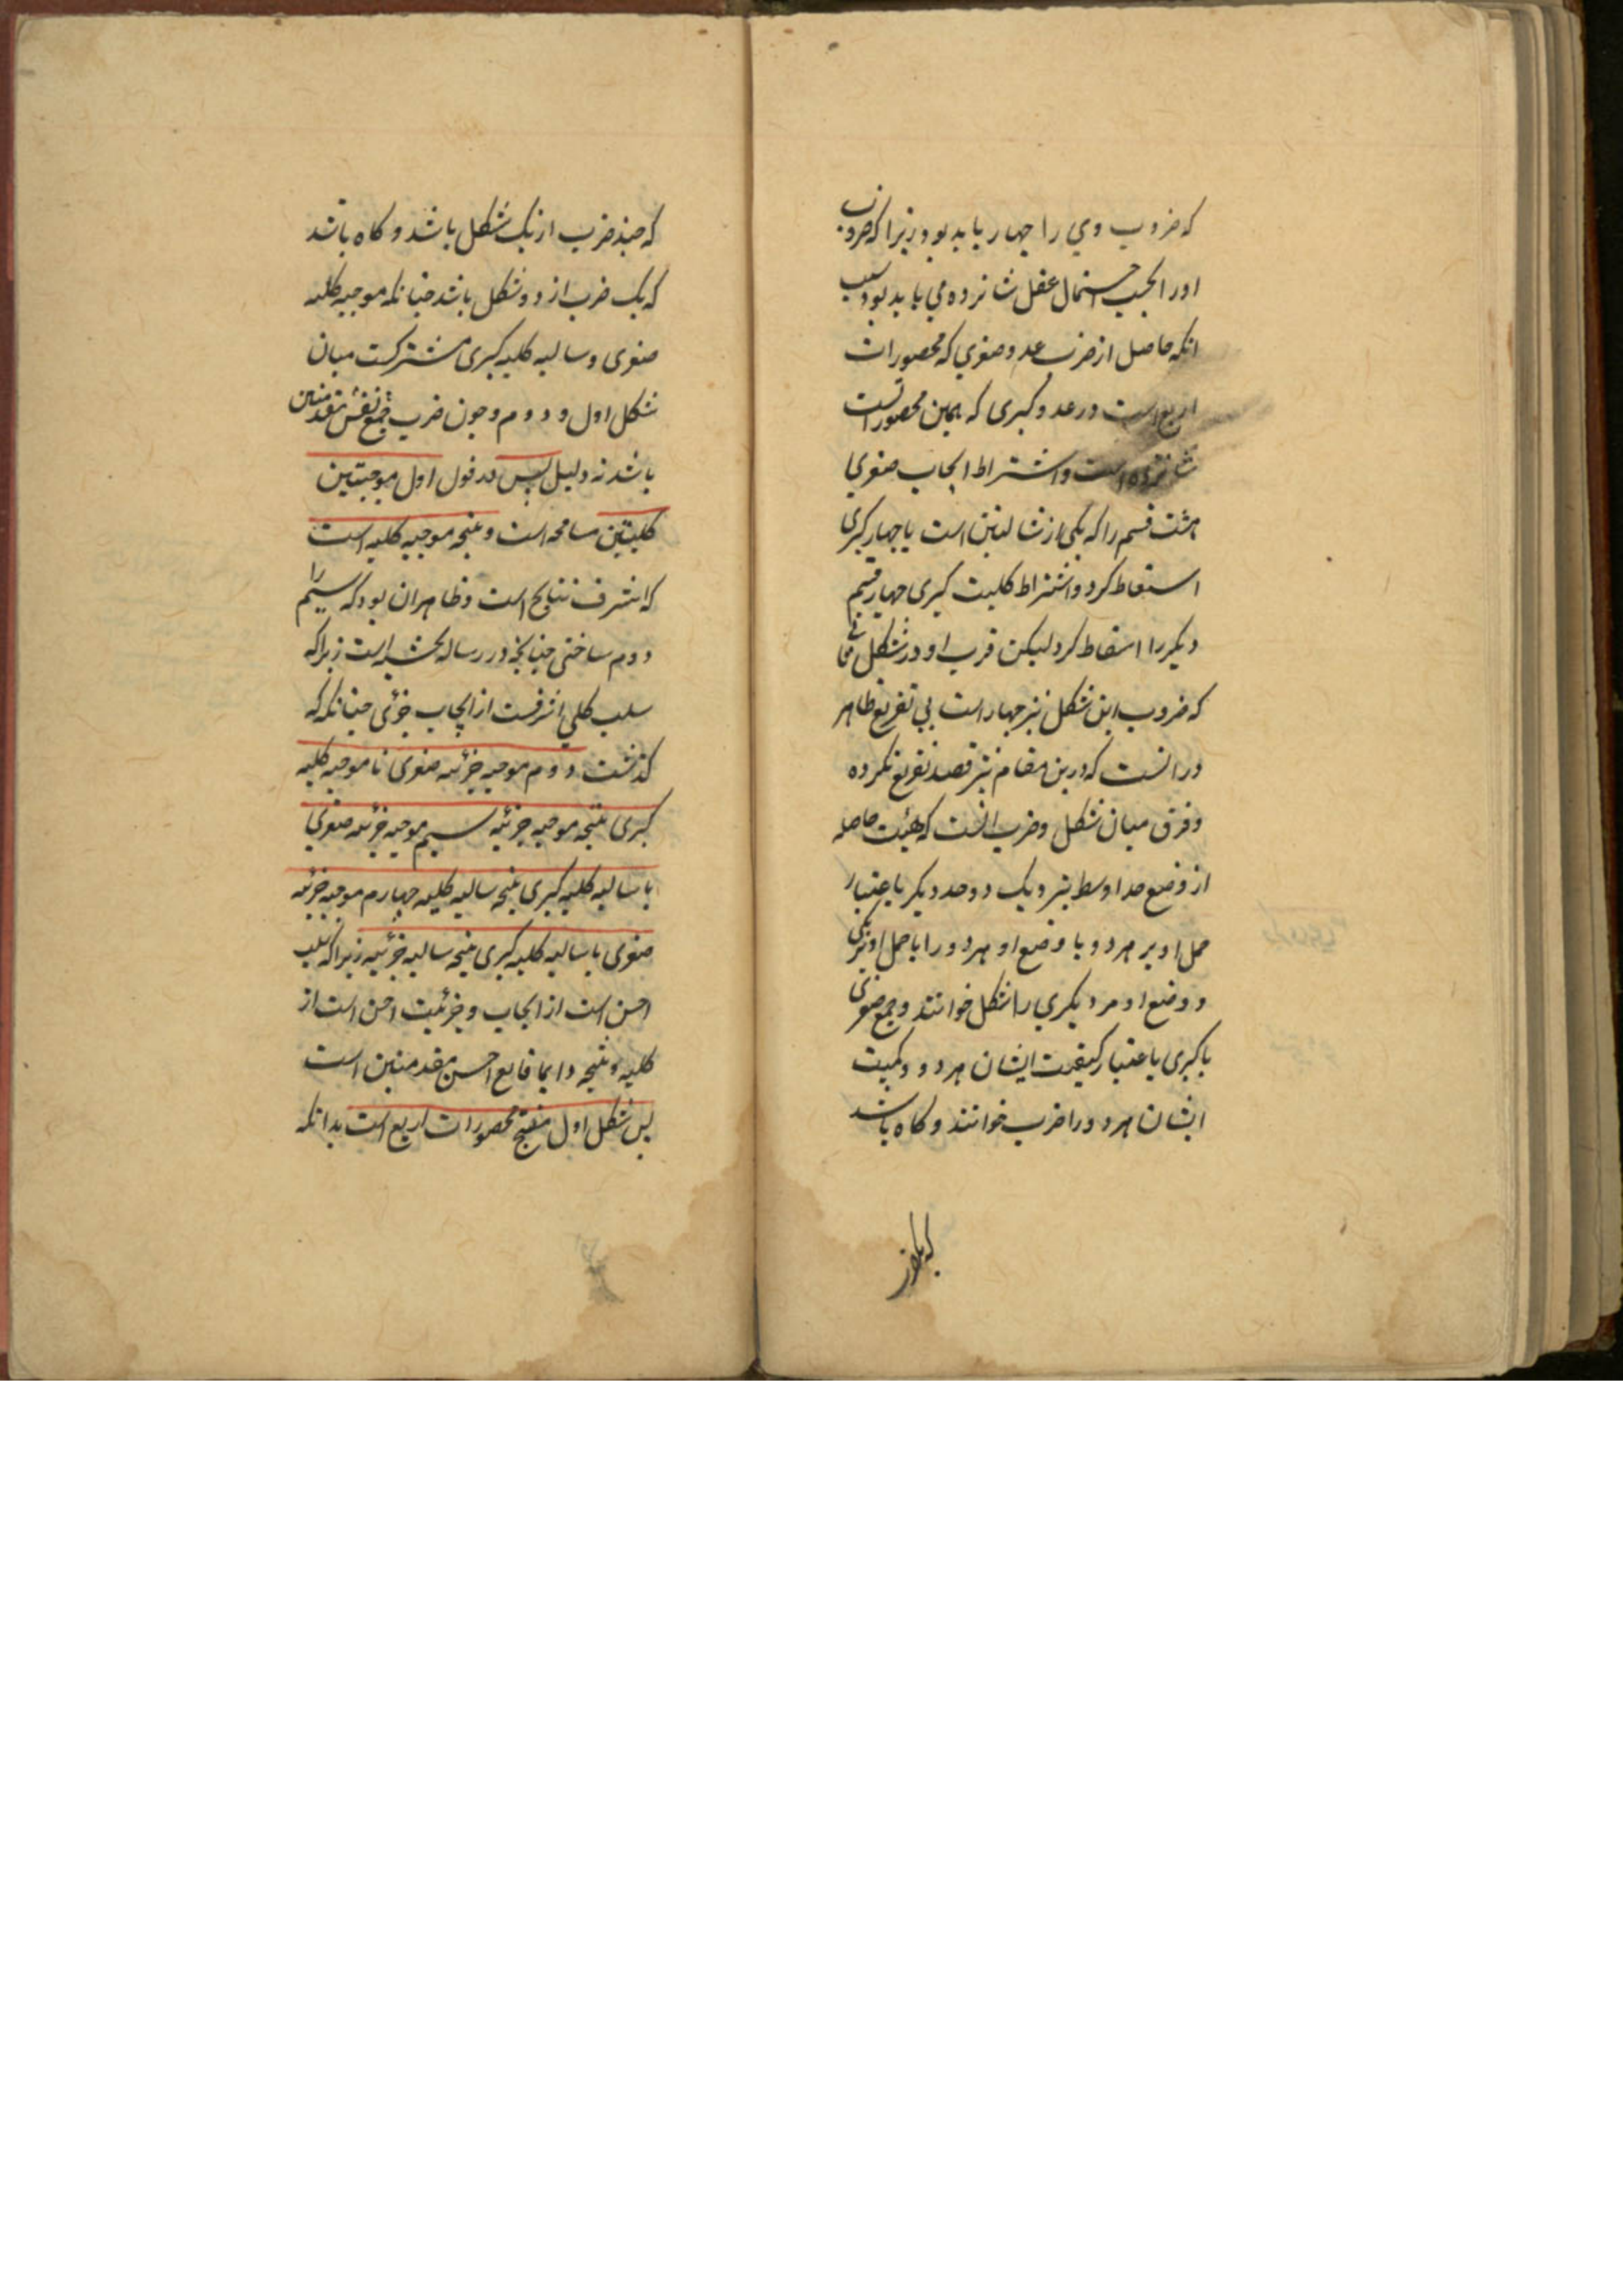 که ضروب وي را چهار باید بود زیرا که ضروب
اورا بحسب احتمال عقل شانزده می باید بود بسبب
انکه حاصل از ضرب عدد صغری که محصورات
اربع است در عدد کبری که همین محصوراتست
شانزده است و اشتراط ایجاب صغری
هشت قسم را که یکی از سالبتین است با چهار کبری
اسقاط کرد و اشتراط کلیت کبری چهار قسم
دیکر را اسقاط کرد لیکن قریب او در شکل ثانی
که ضروب این شکل نیز چهار است بی تفریع ظاهر
در انست که درین مقام نیز قصد تفریع نکرده
و فرق میان شکل و ضرب انست که هیئت حاصله
از وضع حد اوسط نزدیک دو حد دیکر باعتبار
حمل او بر هر دو یا وضع او هر دو را یا حمل او بر یکی
و وضع او مر دیکری را شکل خوانند و جمع صغری
با کبری باعتبار کیفیت ایشان هر دو و کمیت
ایشان هر دو را ضرب خوانند و کاه باشد
که چند ضرب از یک شکل باشد و کاه باشد
که یک ضرب از دو شکل باشد چنانکه موجبه کلیه
صغری و سالبه کلیه کبری مشترکست میان
شکل اول و دوم و چون ضرب جمع نفس مقدمتین
باشد نه دلیل پس در قول اول موجبتین
کلیتین مسامحه است و نتیجه موجبه کلیه است
که اشرف نتایج است و ظاهر ان بود که سیم را
دوم ساختی چنانچه در رساله شمسیه است زیرا که
سلب کلی اشرفست از ایجاب جزئی چنانکه که
کذشت دوم موجبه جزئیه صغری با موجبه کلیه
کبری نتیجه موجبه جزئیه سیم موجبه جزئیه صغری
با سالبه کلیه کبری نتیجه سالبه کلیه چهارم موجبه جزئیه
صغری با سالبه کلیه کبری نتیجه سالبه جزئیه زیرا که سلب
اخس است از ایجاب و جزئیت اخس است از
کلیه و نتیجه دایما تابع اخس مقدمتین است
پس شکل اول منتج محصورات اربع است بدانکه